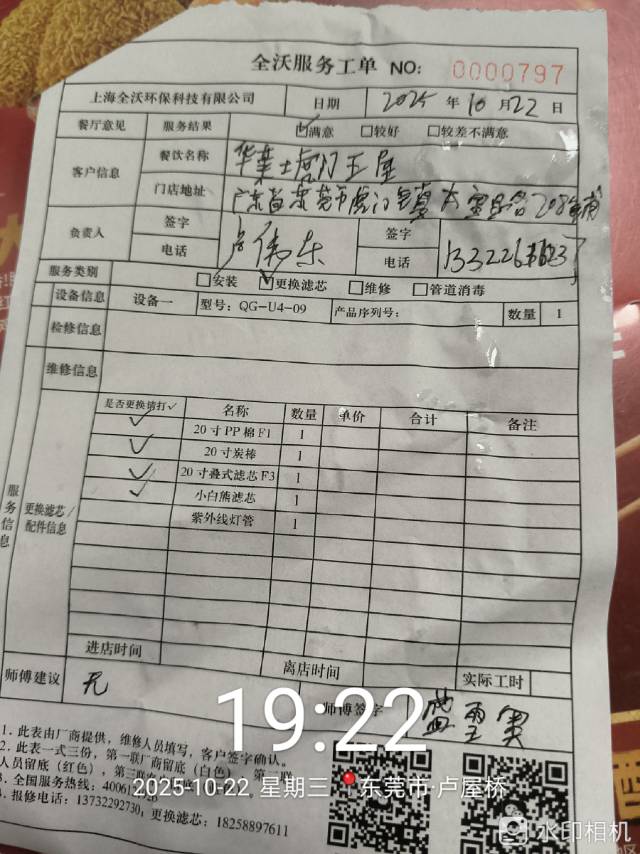 全沃服务工单 NO: 0000797
上海全沃环保科技有限公司 日期 2025 年 10 月 22 日
餐厅意见 服务结果 ☑满意 □较好 □较差不满意
客户信息 餐饮名称
门店地址 广东省东莞市虎门镇
负责人 签字 签字
电话 电话
服务类别 □安装 ☑更换滤芯 □维修 □管道消毒
设备信息 设备一 型号: QG-U4-09 产品序列号: 数量 1
检修信息
维修信息
服务信息
更换滤芯/配件信息
是否更换请打✓ 名称 数量 单价 合计 备注
✓ 20寸PP棉F1 1
✓ 20寸炭棒 1
✓ 20寸叠式滤芯F3 1
✓ 小白熊滤芯 1
紫外线灯管 1
进店时间 离店时间 实际工时
师傅建议 无 师傅签字
19:22
1. 此表由厂商提供，维修人员填写，客户签字确认。
2. 此表一式三份，第一联厂商留底（白色）
人员留底（红色），第三联
2025-10-22 星期三 东莞市·卢屋桥
3. 全国服务热线: 400
4. 报修电话: 13732292730, 更换滤芯: 18258897611
水印相机